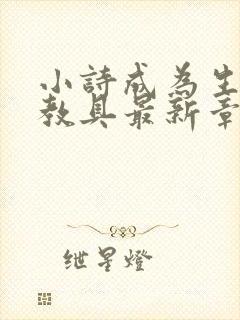 小詩成為生
教具最新章
紲星燈